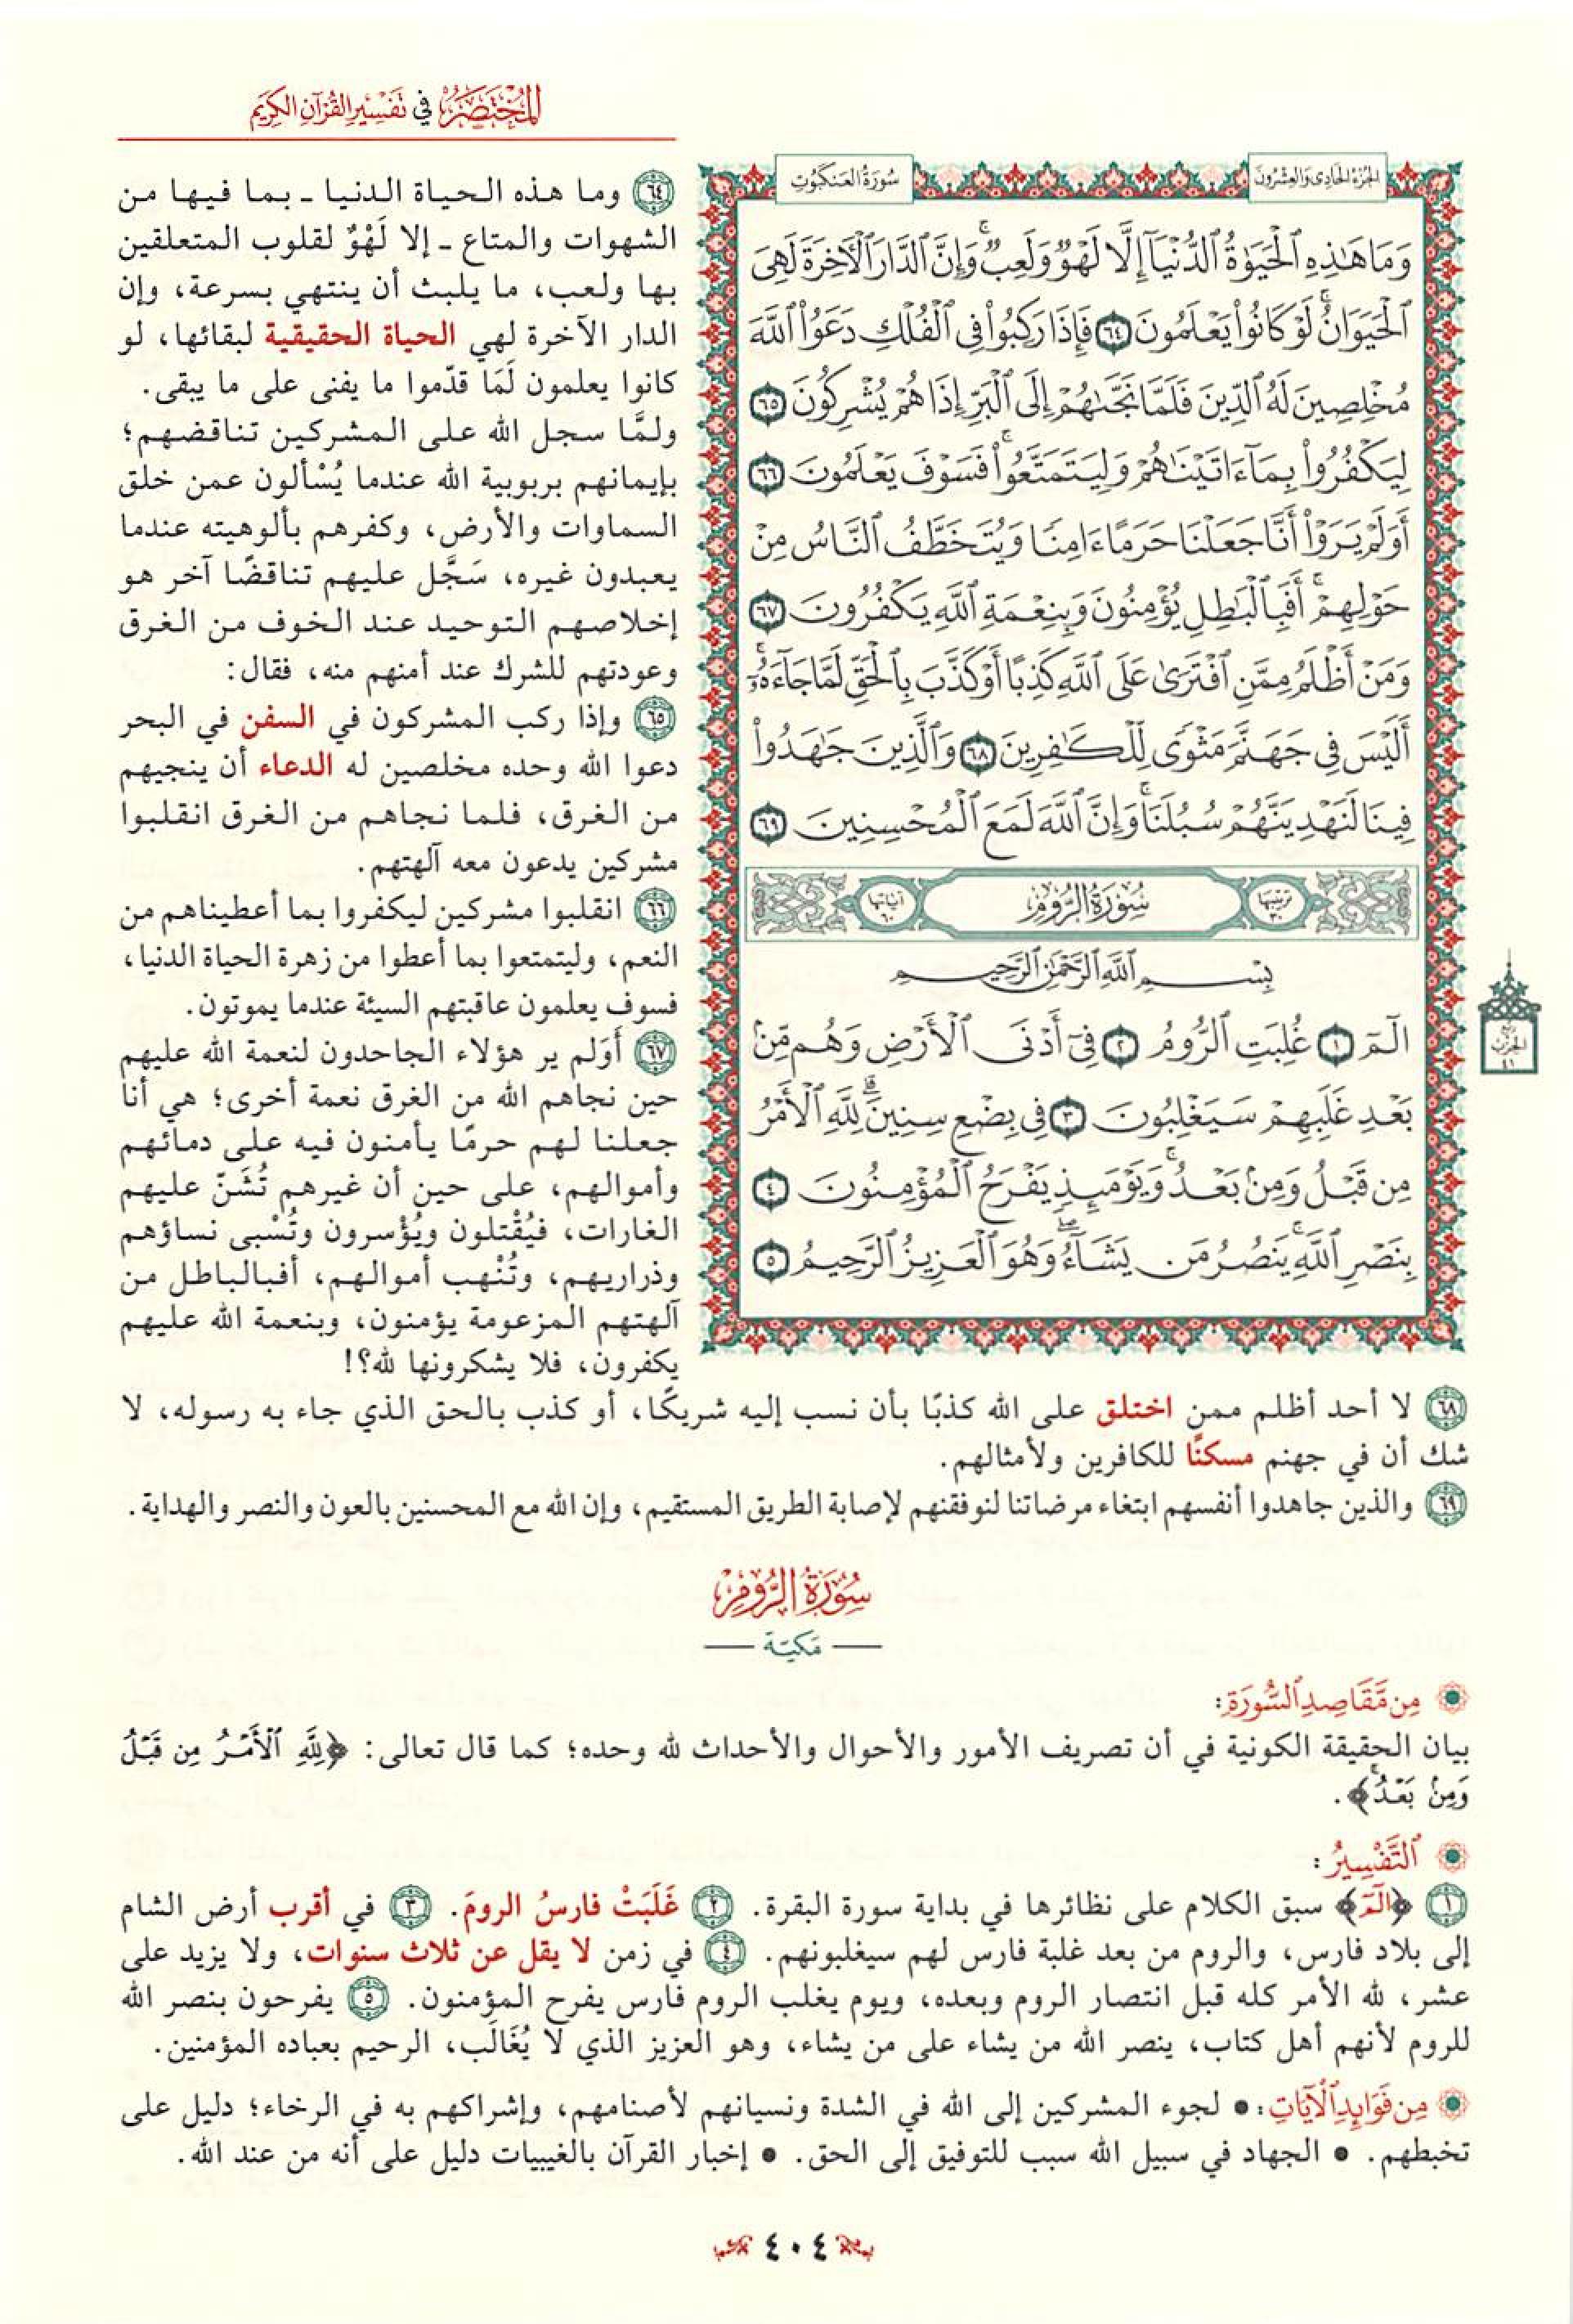 المختصر في تفسير القرآن الكريم
الجزء الحادي والعشرون
سورة العنكبوت
وَمَا هَٰذِهِ ٱلْحَيَوٰةُ ٱلدُّنْيَآ إِلَّا لَهْوٌ وَلَعِبٌ ۚ وَإِنَّ ٱلدَّارَ ٱلْأَخِرَةَ لَهِىَ
ٱلْحَيَوَانُ ۚ لَوْ كَانُوا۟ يَعْلَمُونَ ٦٤ فَإِذَا رَكِبُوا۟ فِى ٱلْفُلْكِ دَعَوُا۟ ٱللَّهَ
مُخْلِصِينَ لَهُ ٱلدِّينَ فَلَمَّا نَجَّىٰهُمْ إِلَى ٱلْبَرِّ إِذَا هُمْ يُشْرِكُونَ ٦٥
لِيَكْفُرُوا۟ بِمَآ ءَاتَيْنَٰهُمْ وَلِيَتَمَتَّعُوا۟ ۚ فَسَوْفَ يَعْلَمُونَ ٦٦
أَوَلَمْ يَرَوْا۟ أَنَّا جَعَلْنَا حَرَمًا ءَامِنًا وَيُتَخَطَّفُ ٱلنَّاسُ مِنْ
حَوْلِهِمْ ۚ أَفَبِٱلْبَٰطِلِ يُؤْمِنُونَ وَبِنِعْمَةِ ٱللَّهِ يَكْفُرُونَ ٦٧
وَمَنْ أَظْلَمُ مِمَّنِ ٱفْتَرَىٰ عَلَى ٱللَّهِ كَذِبًا أَوْ كَذَّبَ بِٱلْحَقِّ لَمَّا جَآءَهُۥٓ ۚ
أَلَيْسَ فِى جَهَنَّمَ مَثْوًى لِّلْكَٰفِرِينَ ٦٨ وَٱلَّذِينَ جَٰهَدُوا۟
فِينَا لَنَهْدِيَنَّهُمْ سُبُلَنَا ۚ وَإِنَّ ٱللَّهَ لَمَعَ ٱلْمُحْسِنِينَ ٦٩
ترتيبها ٣٠ سورة الروم آياتها ٦٠
بِسْمِ ٱللَّهِ ٱلرَّحْمَٰنِ ٱلرَّحِيمِ
الٓمٓ ١ غُلِبَتِ ٱلرُّومُ ٢ فِىٓ أَدْنَى ٱلْأَرْضِ وَهُم مِّنۢ
بَعْدِ غَلَبِهِمْ سَيَغْلِبُونَ ٣ فِى بِضْعِ سِنِينَ ۗ لِلَّهِ ٱلْأَمْرُ
مِن قَبْلُ وَمِنۢ بَعْدُ ۚ وَيَوْمَئِذٍ يَفْرَحُ ٱلْمُؤْمِنُونَ ٤
بِنَصْرِ ٱللَّهِ ۚ يَنصُرُ مَن يَشَآءُ ۖ وَهُوَ ٱلْعَزِيزُ ٱلرَّحِيمُ ٥
ربع
الحزب
٤١
٦٤ وما هذه الحياة الدنيا ـ بما فيها من
الشهوات والمتاع ـ إلا لَهْوٌ لقلوب المتعلقين
بها ولعب، ما يلبث أن ينتهي بسرعة، وإن
الدار الآخرة لهي الحياة الحقيقية لبقائها، لو
كانوا يعلمون لَمَا قدّموا ما يفنى على ما يبقى.
ولمَّا سجل الله على المشركين تناقضهم؛
بإيمانهم بربوبية الله عندما يُسْألون عمن خلق
السماوات والأرض، وكفرهم بألوهيته عندما
يعبدون غيره، سَجَّل عليهم تناقضًا آخر هو
إخلاصهم التوحيد عند الخوف من الغرق
وعودتهم للشرك عند أمنهم منه، فقال:
٦٥ وإذا ركب المشركون في السفن في البحر
دعوا الله وحده مخلصين له الدعاء أن ينجيهم
من الغرق، فلما نجاهم من الغرق انقلبوا
مشركين يدعون معه آلهتهم.
٦٦ انقلبوا مشركين ليكفروا بما أعطيناهم من
النعم، وليتمتعوا بما أعطوا من زهرة الحياة الدنيا،
فسوف يعلمون عاقبتهم السيئة عندما يموتون.
٦٧ أَوَلم ير هؤلاء الجاحدون لنعمة الله عليهم
حين نجاهم الله من الغرق نعمة أخرى؛ هي أنا
جعلنا لهم حرمًا يأمنون فيه على دمائهم
وأموالهم، على حين أن غيرهم تُشَنّ عليهم
الغارات، فيُقْتلون ويُؤْسرون وتُسْبى نساؤهم
وذراريهم، وتُنْهب أموالهم، أفبالباطل من
آلهتهم المزعومة يؤمنون، وبنعمة الله عليهم
يكفرون، فلا يشكرونها لله؟!
٦٨ لا أحد أظلم ممن اختلق على الله كذبًا بأن نسب إليه شريكًا، أو كذب بالحق الذي جاء به رسوله، لا
شك أن في جهنم مسكنًا للكافرين ولأمثالهم.
٦٩ والذين جاهدوا أنفسهم ابتغاء مرضاتنا لنوفقنهم لإصابة الطريق المستقيم، وإن الله مع المحسنين بالعون والنصر والهداية.
سورة الروم
مكية
من مقاصد السورة:
بيان الحقيقة الكونية في أن تصريف الأمور والأحوال والأحداث لله وحده؛ كما قال تعالى: ﴿لِلَّهِ ٱلْأَمْرُ مِن قَبْلُ
وَمِنۢ بَعْدُ ۚ﴾.
التفسير:
١ ﴿الٓمٓ﴾ سبق الكلام على نظائرها في بداية سورة البقرة. ٢ غَلَبَتْ فارسُ الرومَ. ٣ في أقرب أرض الشام
إلى بلاد فارس، والروم من بعد غلبة فارس لهم سيغلبونهم. ٤ في زمن لا يقل عن ثلاث سنوات، ولا يزيد على
عشر، لله الأمر كله قبل انتصار الروم وبعده، ويوم يغلب الروم فارس يفرح المؤمنون. ٥ يفرحون بنصر الله
للروم لأنهم أهل كتاب، ينصر الله من يشاء على من يشاء، وهو العزيز الذي لا يُغَالَب، الرحيم بعباده المؤمنين.
من فوائد الآيات: • لجوء المشركين إلى الله في الشدة ونسيانهم لأصنامهم، وإشراكهم به في الرخاء؛ دليل على
تخبطهم. • الجهاد في سبيل الله سبب للتوفيق إلى الحق. • إخبار القرآن بالغيبيات دليل على أنه من عند الله.
٤٠٤